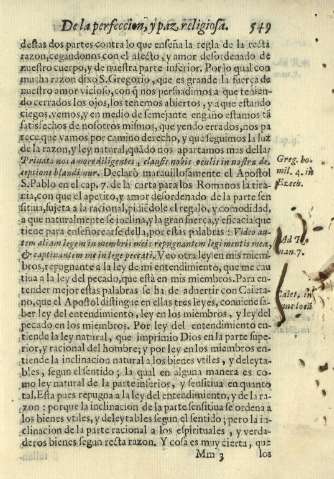 De la perfeccion, y paz religiosa. 549
destas dos partes contra lo que enseña la regla de la recta
razon, cegandonos con el afecto, y amor desordenado de
nuestro cuerpo, y de nuestra parte inferior. Por lo qual con
mucha razon dixo S. Gregorio, que es grande la fuerça de
nuestro amor vicioso, con q̃ nos persuadimos a que tenien-
do cerrados los ojos, los tenemos abiertos, y a que estando
ciegos, vemos, y en medio de semejante engaño estamos tã
satisfechos de nosotros mismos, que yendo errados, nos pa
rece que vamos por camino derecho, y que seguimos la luz
de la razon, y ley natural, quãdo nos apartamos mas della:
Priuato nos amore diligentes, clausis nobis oculis in nostra de-
ceptione blandimur. Declarò marauillosamente el Apostol
S. Pablo en el cap. 7. de la carta para los Romanos la tira-
nia, con que el apetito, y amor desordenado de la parte se
sitiua, sujeta a la racional, pidiẽdole el regalo, y comodidad,
a que naturalmente se inclina, y la gran fuerça, y eficacia que
tiene para enseñorearse della, por estas palabras: Video au-
tem aliam legem in membris meis repugnantem legi mentis meæ,
& captiuantem me in lege peccati. Veo otra ley en mis miem-
bros, repugnante a la ley de mi entendimiento, que me cau
tiua a la ley del pecado, que està en mis miembros. Para en-
tender mejor estas palabras se ha de aduertir con Caieta-
no, que el Apostol distingue en ellas tres leyes, conuiene sa-
ber ley del entendimiento, ley en los miembros, y ley del
pecado en los miembros. Por ley del entendimiento en-
tiende la ley natural, que imprimio Dios en la parte supe-
rior, y racional del hombre; y por ley en los miembros en-
tiende la inclinacion natural a los bienes vtiles, y deleyta-
bles, segun el sentido; la qual en alguna manera es co-
mo ley natural de la parte inferior, y sensitiua en quanto
tal. Esta pues repugna a la ley del entendimiento, y de la ra-
zon: porque la inclinacion de la parte sensitiua se ordena a
los bienes vtiles, y deleytables segun el sentido; pero la in-
clinacion de la parte racional a los espirituales, y verda-
deros bienes segun recta razon. Y cosa es muy cierta, que
Mm 3 los
Greg. ho.
mil. 4. in
Ezech.
Ad Ro
man. 7.
Caiet. in